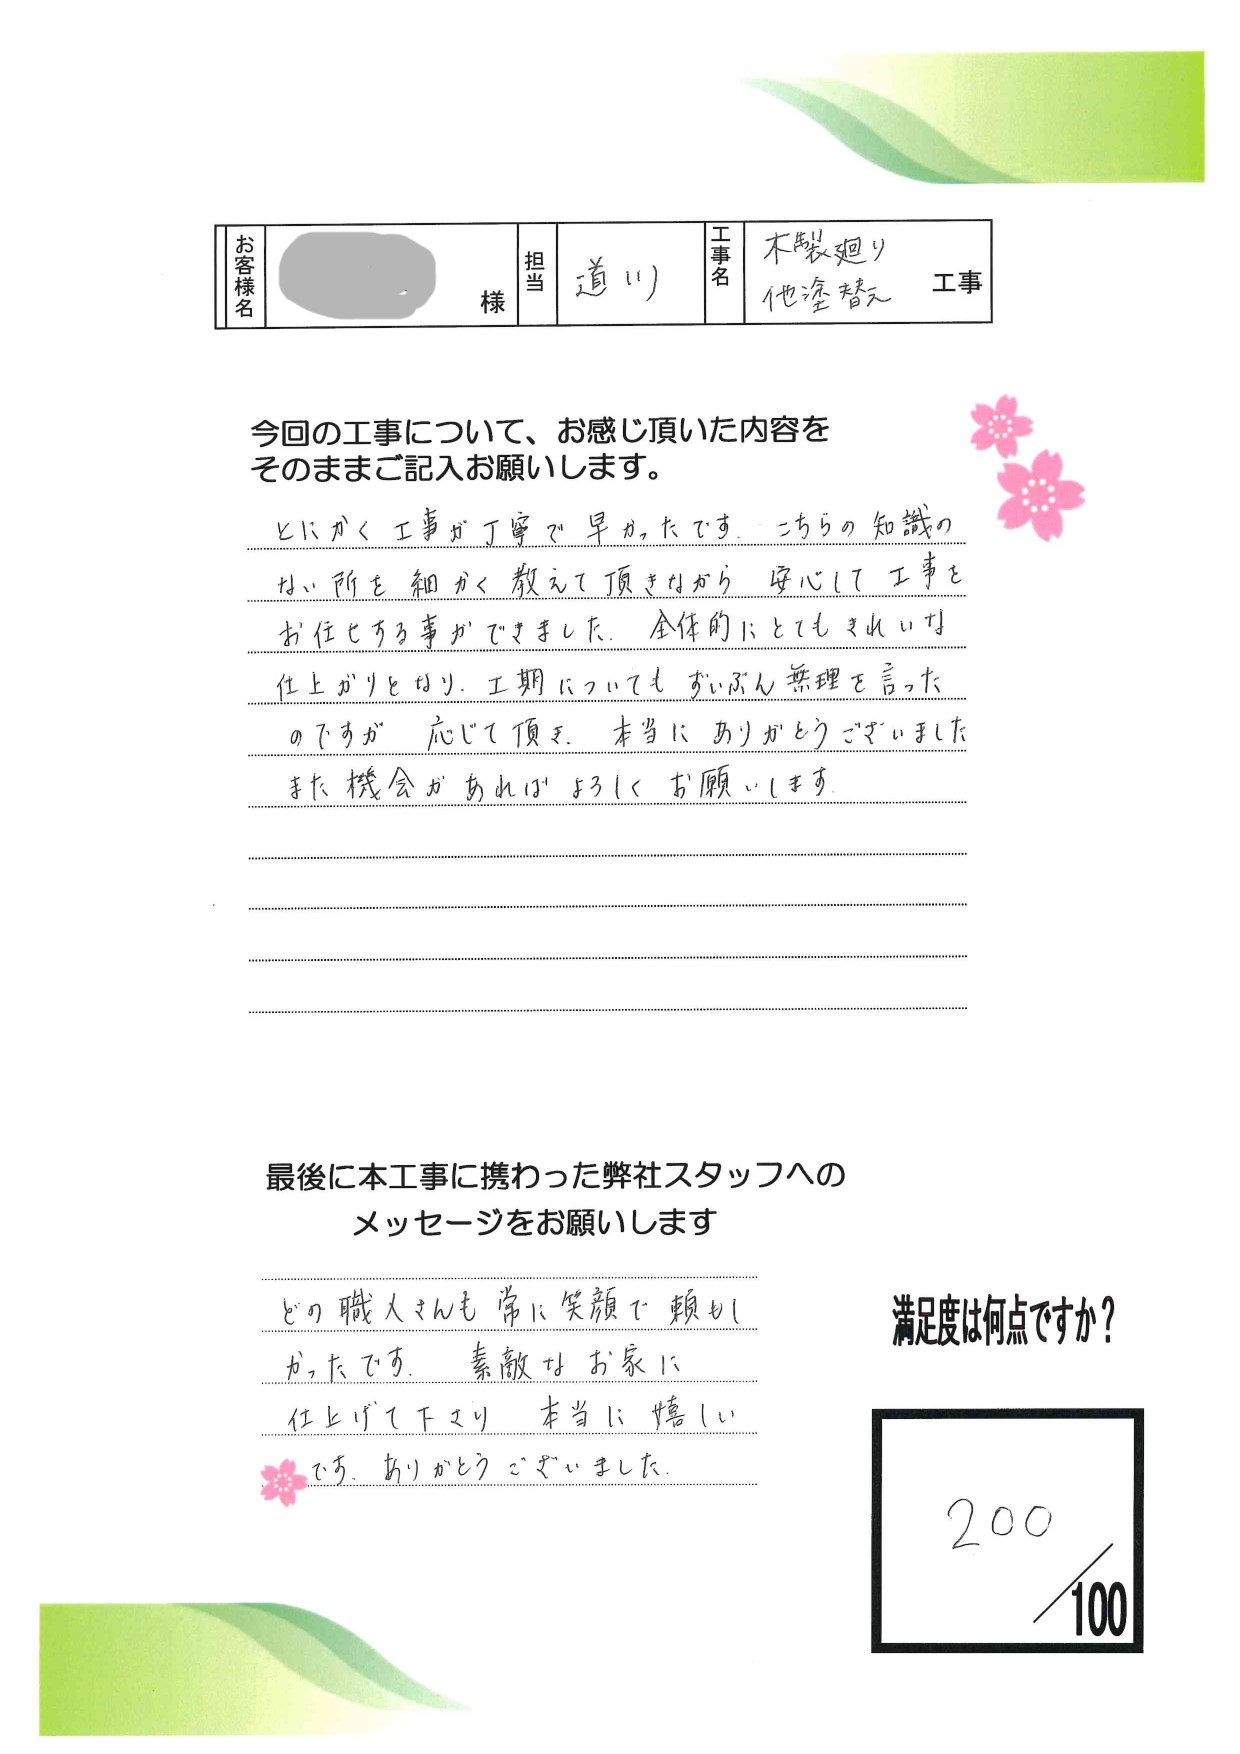 お客様名
様
担当
道川
工事名
木製廻り
他塗替え
工事
今回の工事について、お感じ頂いた内容を
そのままご記入お願いします。
とにかく工事が丁寧で 早かったです. こちらの知識の
ない所を 細かく 教えて頂きながら 安心して 工事を
お任せする事ができました. 全体的にとてもきれいな
仕上がりとなり. 工期についても ずいぶん 無理を言った
のですが 応じて頂き. 本当に ありがとうございました
また 機会があれば よろしく お願いします.
最後に本工事に携わった弊社スタッフへの
メッセージをお願いします
どの職人さんも 常に笑顔で 頼もし
かったです. 素敵な お家に
仕上げて下さり 本当に 嬉しい
です. ありがとうございました.
満足度は何点ですか？
200
/100